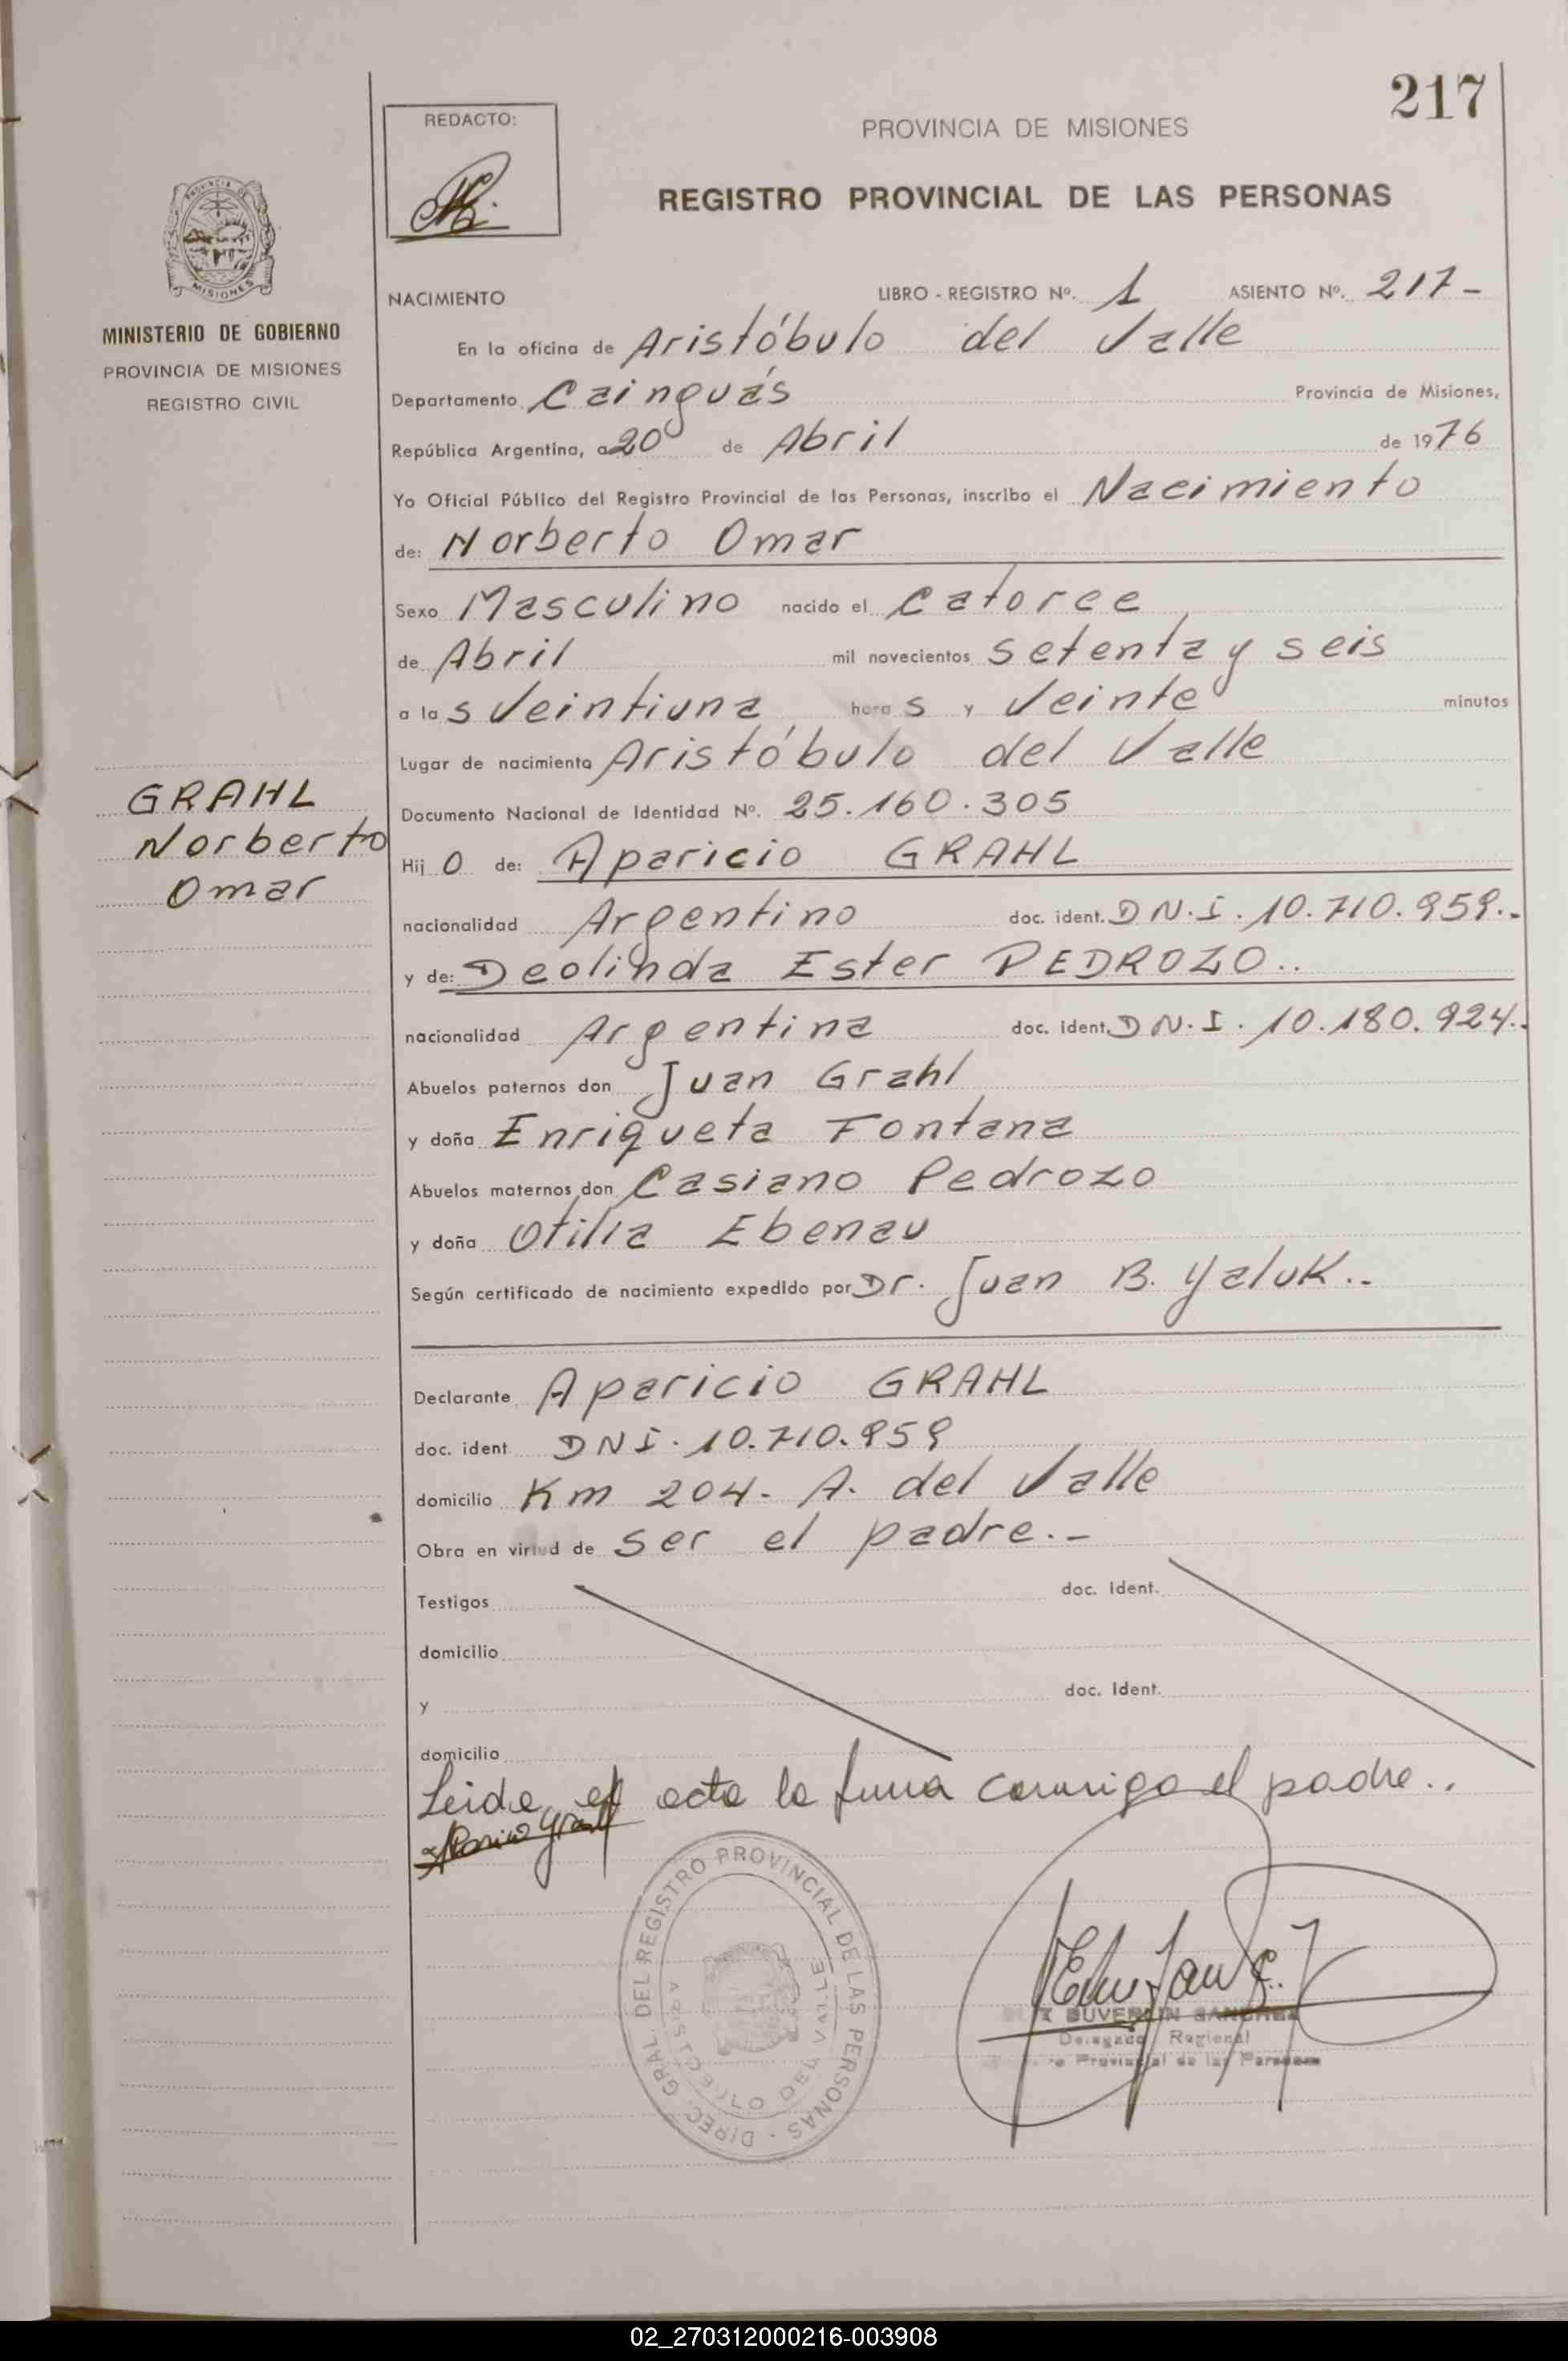 217
REDACTO:
PROVINCIA DE MISIONES
REGISTRO PROVINCIAL DE LAS PERSONAS
PROVINCIA DE
MISIONES
MINISTERIO DE GOBIERNO
PROVINCIA DE MISIONES
REGISTRO CIVIL
NACIMIENTO LIBRO - REGISTRO Nº. 1 ASIENTO Nº. 217-
En la oficina de Aristóbulo del Valle
Departamento Cainguás Provincia de Misiones,
República Argentina, a 20 de Abril de 1976
Yo Oficial Público del Registro Provincial de las Personas, inscribo el Nacimiento
de: Norberto Omar
Sexo Masculino nacido el catorce
de Abril mil novecientos setenta y seis
a las Veintiuna horas y Veinte minutos
Lugar de nacimiento Aristóbulo del Valle
GRAHL
Norberto
Omar
Documento Nacional de Identidad Nº. 25.160.305
Hijo de: Aparicio GRAHL
nacionalidad Argentino doc. ident. DN.I. 10.710.959.-
y de: Deolinda Ester PEDROZO..
nacionalidad Argentina doc. ident. DN.I. 10.180.924..
Abuelos paternos don Juan Grahl
y doña Enriqueta Fontana
Abuelos maternos don Casiano Pedrozo
y doña Otilia Ebenau
Según certificado de nacimiento expedido por Dr. Juan B. Yaluk..
Declarante Aparicio GRAHL
doc. ident DNI. 10.710.959
domicilio Km 204. A. del Valle
Obra en virtud de ser el padre.-
Testigos doc. ident.
domicilio
y doc. ident.
domicilio
Leida el acta la firma conmigo el padre..
Aparicio Grahl
DIREC. GRAL. DEL REGISTRO PROVINCIAL DE LAS PERSONAS -
DEL VALLE
Delegado Regional
Provincial de las Personas
02_270312000216-003908